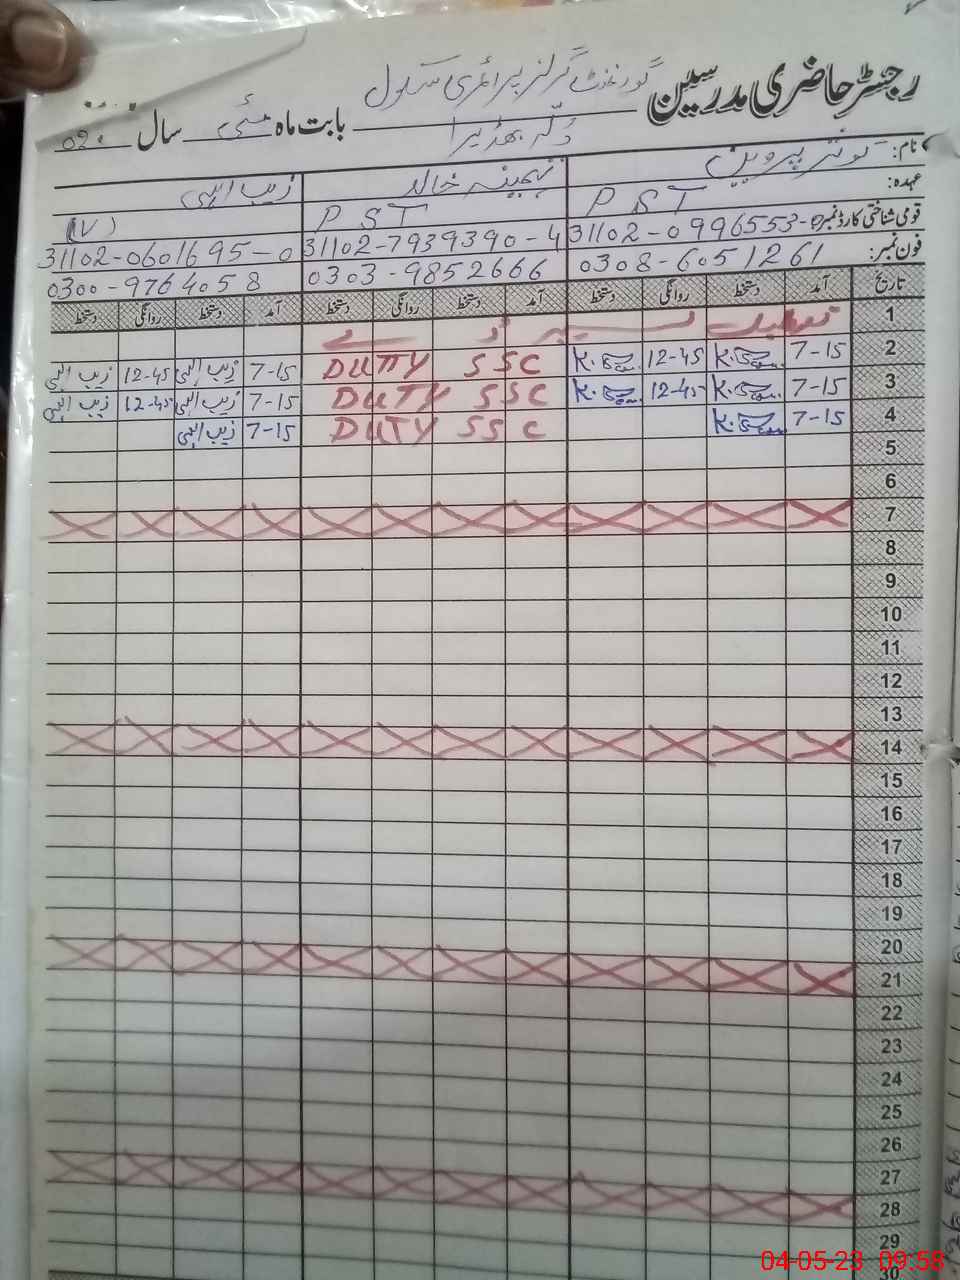 رجسٹر حاضری مدرسین گورنمنٹ گرلز پرائمری سکول بابت ماہ مئی سال
نام: کوثر پروین تہمینہ خالد زیب الہی
عہدہ: PST PST (V)
قومی شناختی کارڈ نمبر 31102-0996553-0 31102-7939390-4 31102-0601695-0
فون نمبر: 0308-6051261 0303-9852666 0300-9764058
تاریخ آمد دستخط روانگی دستخط آمد دستخط روانگی دستخط آمد دستخط روانگی دستخط
1 تعطیل لیبر ڈے
2 7-15 K. 12-45 K. DUTY SSC 7-15 زیب الہی 12-45 زیب الہی
3 7-15 K. 12-45 K. DUTY SSC 7-15 زیب الہی 12-45 زیب الہی
4 7-15 K. DUTY SSC 7-15 زیب الہی
5
6
7
8
9
10
11
12
13
14
15
16
17
18
19
20
21
22
23
24
25
26
27
28
29
30
04-05-23 09:58